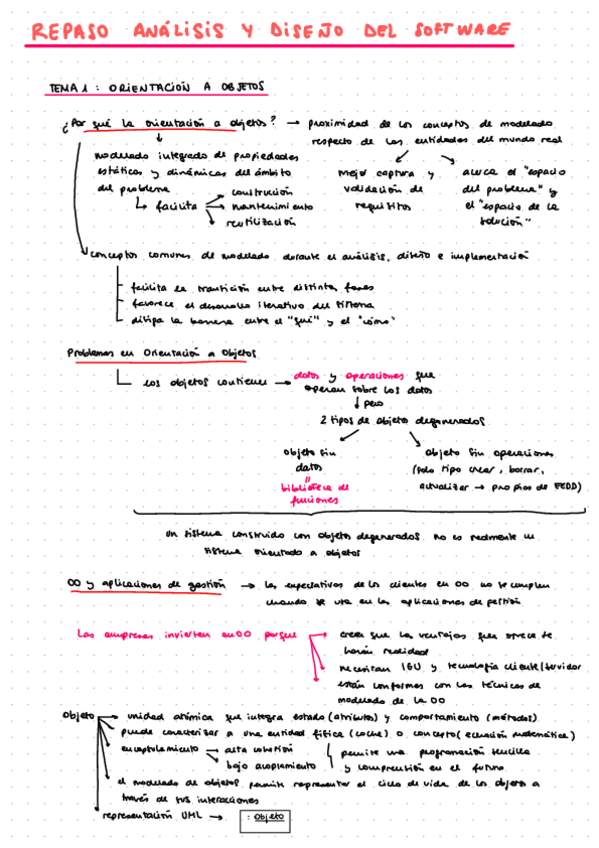 REPASO ANÁLISIS Y DISEÑO DEL SOFTWARE
TEMA 1: ORIENTACIÓN A OBJETOS
¿Por qué la orientación a objetos? → proximidad de los conceptos de modelado
respecto de las entidades del mundo real
modelado integrado de propiedades
estáticas y dinámicas del ámbito
del problema
facilita
construcción
mantenimiento
reutilización
mejor captura y
validación de
requisitos
acerca el "espacio
del problema" y
el "espacio de la
solución"
conceptos comunes de modelado durante el análisis, diseño e implementación
facilita la transición entre distintas fases
favorece el desarrollo iterativo del sistema
disipa la barrera entre el "qué" y el "cómo"
Problemas en Orientación a Objetos
los objetos contienen → datos y operaciones que
operan sobre los datos
↓ pero
2 tipos de objeto degenerados
objeto sin
datos
=
biblioteca de
funciones
objeto sin operaciones
(solo tipo crear, borrar,
actualizar → propios de EEDD)
un sistema construido con objetos degenerados no es realmente un
sistema orientado a objetos
OO y aplicaciones de gestión → las expectativas de los clientes en OO no se cumplen
cuando se usa en las aplicaciones de gestión
Las empresas invierten en OO porque
creen que las ventajas que ofrece se
harán realidad
necesitan IGU y tecnología cliente/servidor
están conformes con las técnicas de
modelado de la OO
Objeto → unidad atómica que integra estado (atributos) y comportamiento (métodos)
puede caracterizar a una entidad física (coche) o concepto (ecuación matemática)
encapsulamiento → alta cohesión
bajo acoplamiento
permite una programación sencilla
y comprensión en el futuro
el modelado de objetos permite representar el ciclo de vida de los objetos a
través de sus interacciones
representación UML → : Objeto